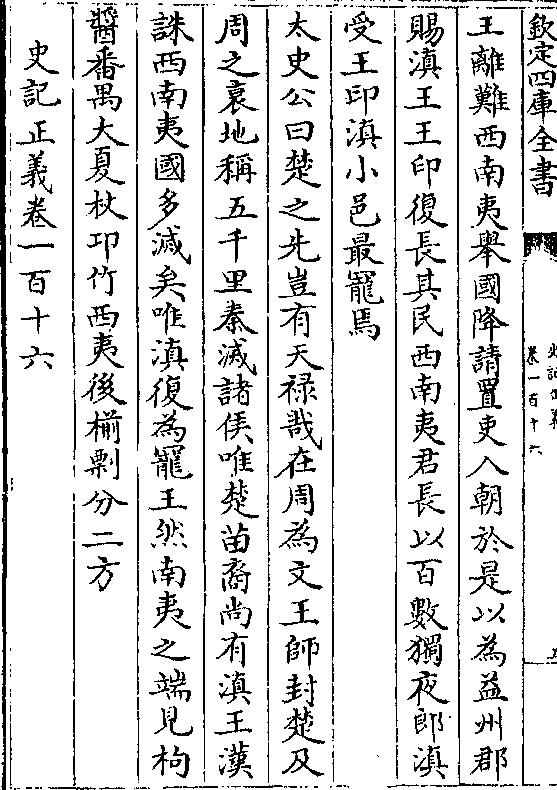 欽定四庫全書
卷一百十六
王離難西南夷舉國降請置吏入朝於是以為益州郡
賜滇王王印復長其民西南夷君長以百數獨夜郎滇
受王印滇小邑最寵焉
太史公曰楚之先豈有天禄哉在周為文王師封楚及
周之衰地稱五千里秦滅諸侯唯楚苗裔尚有滇王漢
誅西南夷國多滅矣唯滇復為寵王然南夷之端見枸
醬番禺大夏杖卭竹西夷後揃剽分二方
史記正義卷一百十六